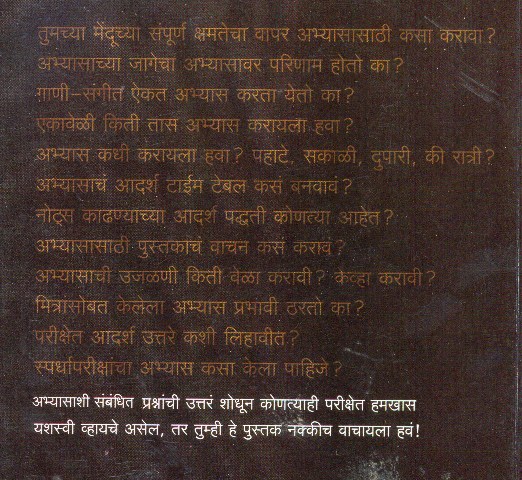 तुमच्या मेंदूच्या संपूर्ण क्षमतेचा वापर अभ्यासासाठी कसा करावा?
अभ्यासाच्या जागेचा अभ्यासावर परिणाम होतो का?
गाणी-संगीत ऐकत अभ्यास करता येतो का?
एकावेळी किती तास अभ्यास करायला हवा?
अभ्यास कधी करायला हवा? पहाटे, सकाळी, दुपारी, की रात्री?
अभ्यासाचं आदर्श टाईम टेबल कसं बनवावं?
नोट्स काढण्याच्या आदर्श पद्धती कोणत्या आहेत?
अभ्यासासाठी पुस्तकाचं वाचन कसं करावं?
अभ्यासाची उजळणी किती वेळा करावी? केव्हा करावी?
मित्रासोबत केलेला अभ्यास प्रभावी ठरतो का?
परीक्षेत आदर्श उत्तरे कशी लिहावीत?
स्पर्धापरीक्षांचा अभ्यास कसा केला पाहिजे?
अभ्यासाशी संबंधित प्रश्नांची उत्तरं शोधून कोणत्याही परीक्षेत हमखास
यशस्वी व्हायचे असेल, तर तुम्ही हे पुस्तक नक्कीच वाचायला हवं!